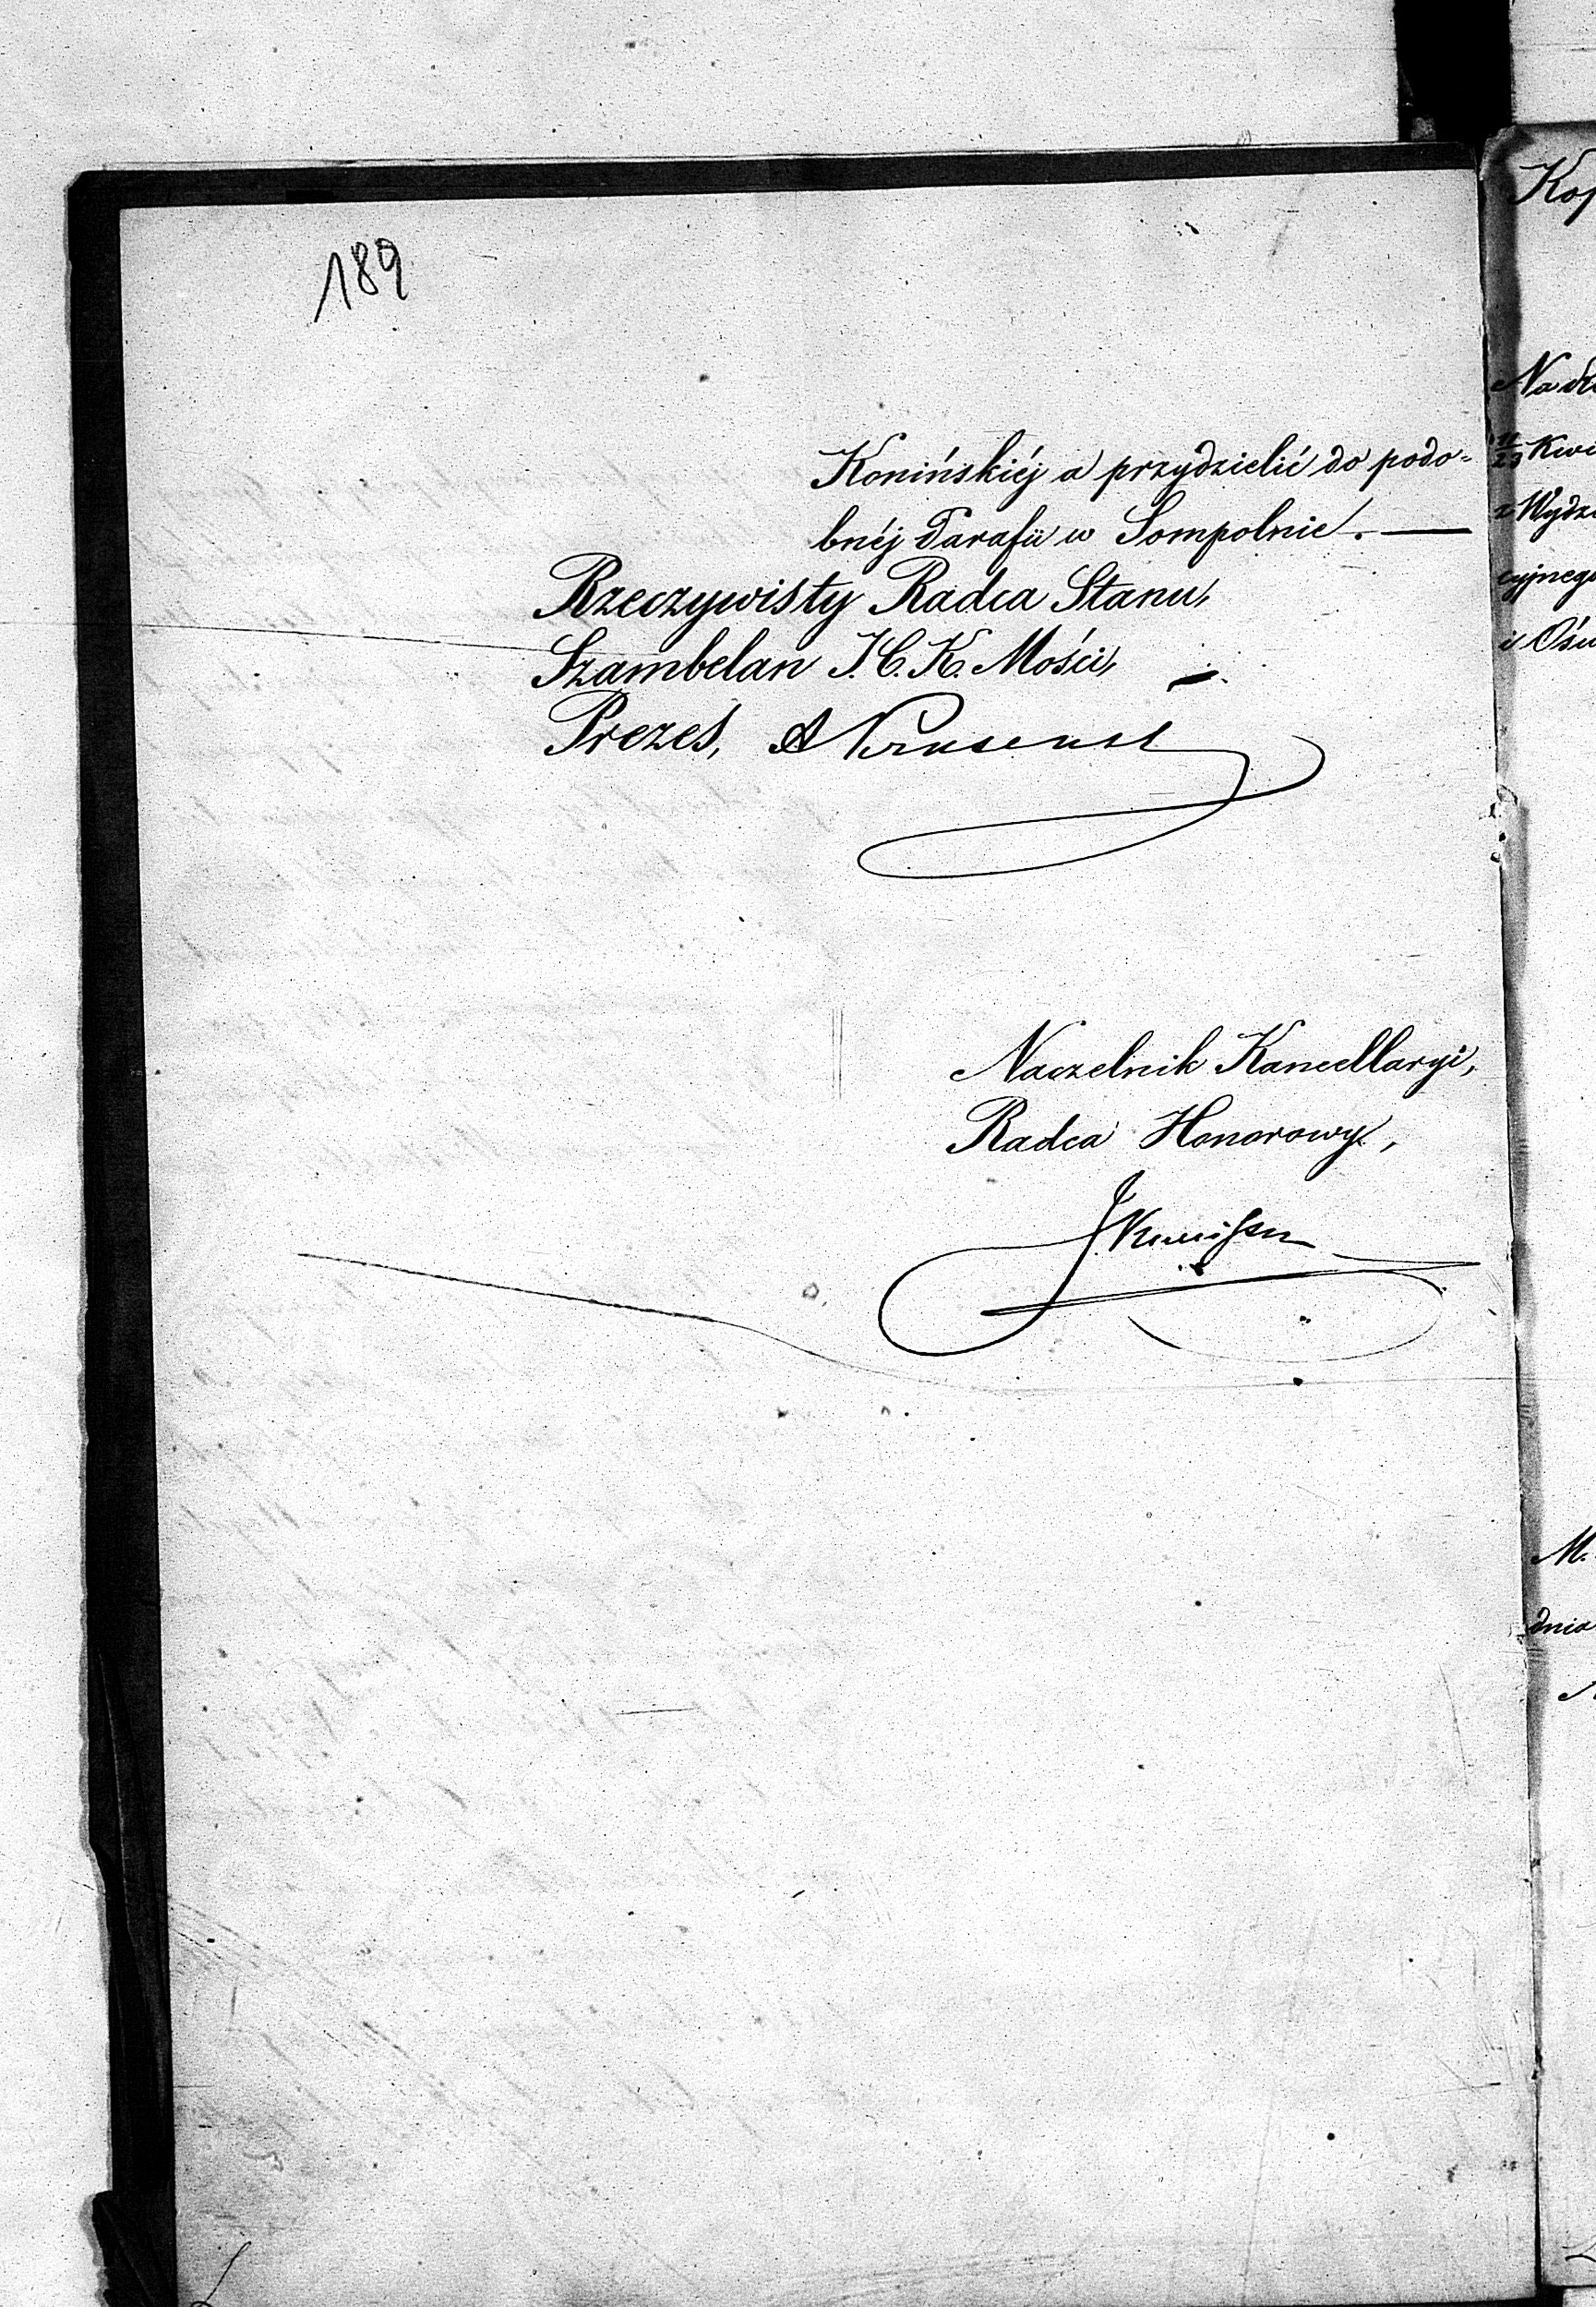 189
Konińskiéj a przydzielić do podo=
bnéj Parafii w Sompolnie. —
Rzeczywisty Radca Stanu,
Szambelan J. C. K. Mości,
Prezes,
Naczelnik Kancellaryi,
Radca Honorowy,
Kop
Na
11/23 Kwi
z Wydz
cyjnego
i Ośw
M.
dnia